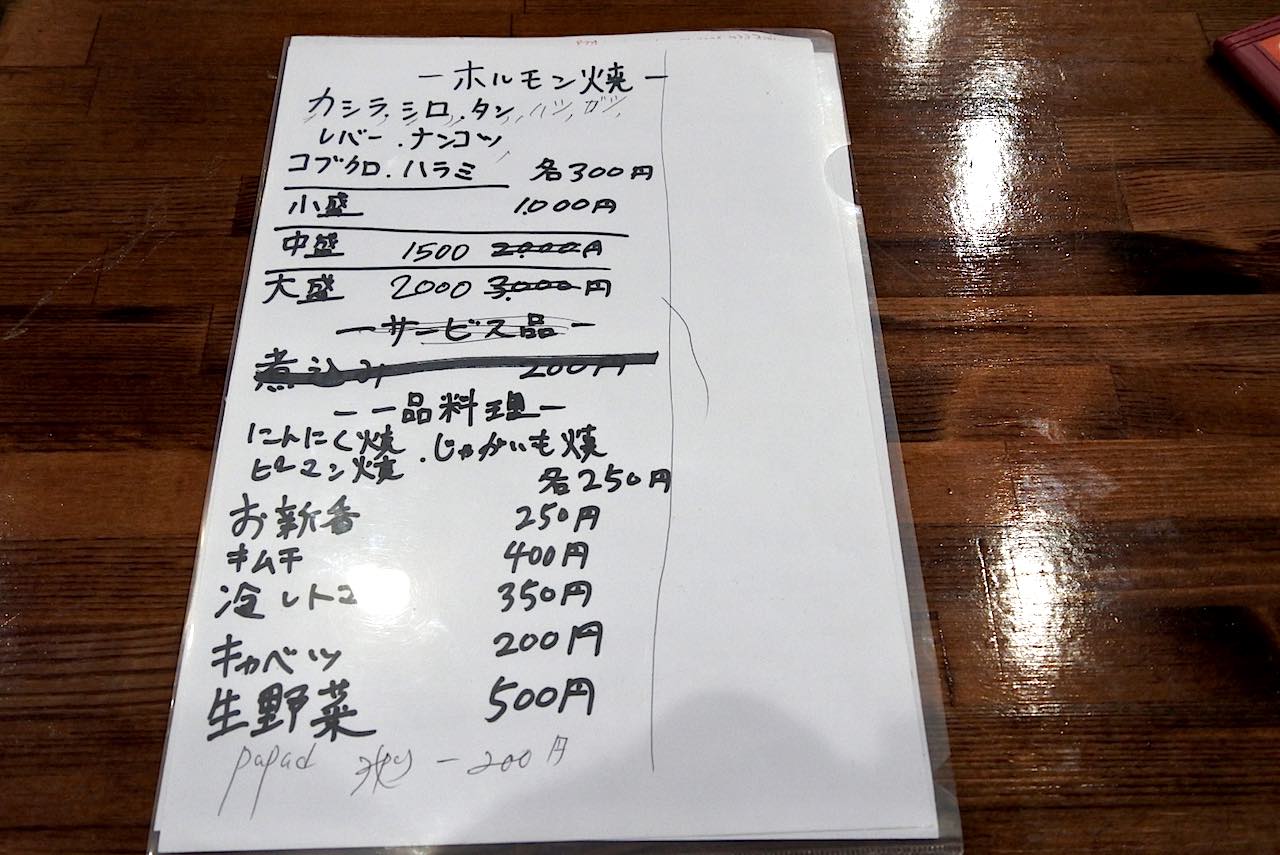 ーホルモン焼ー
カシラ.シロ.タン,ハツ,ガツ,
レバー.ナンコツ
コブクロ.ハラミ 各300円
小盛 1.000円
中盛 1500 2.000円
大盛 2000 3.000円
ーサービス品ー
煮込み 200円
ー一品料理ー
にんにく焼.じゃがいも焼
ピーマン焼
各250円
お新香 250円
キムチ 400円
冷しトマ 350円
キャベツ 200円
生野菜 500円
papad ー200円